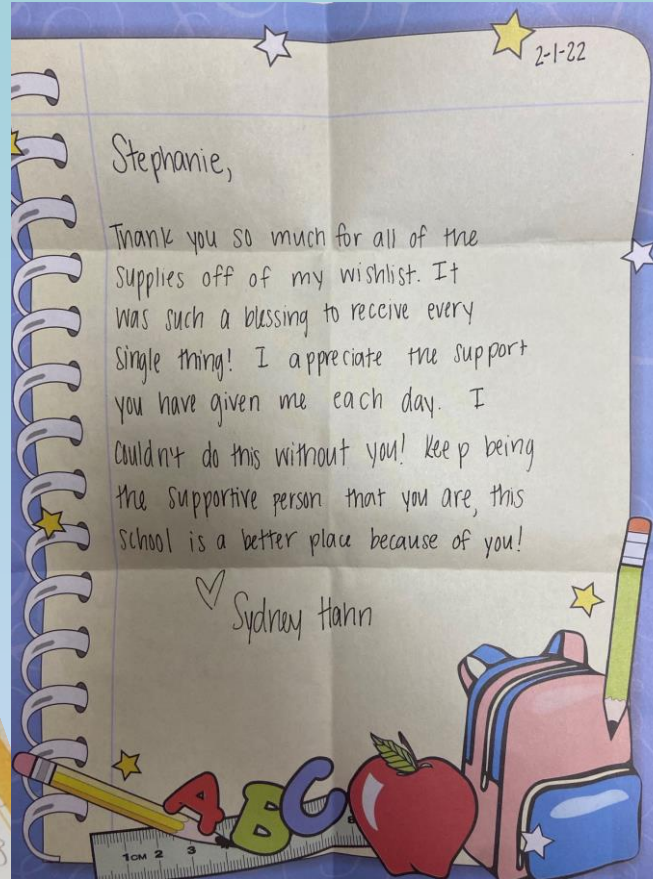 2-1-22
Stephanie,
Thank you so much for all of the
supplies off of my wishlist. It
was such a blessing to receive every
single thing! I appreciate the support
you have given me each day. I
couldn't do this without you! Keep being
the supportive person that you are, this
school is a better place because of you!
♡ Sydney Hahn
ABC
1CM 2 3